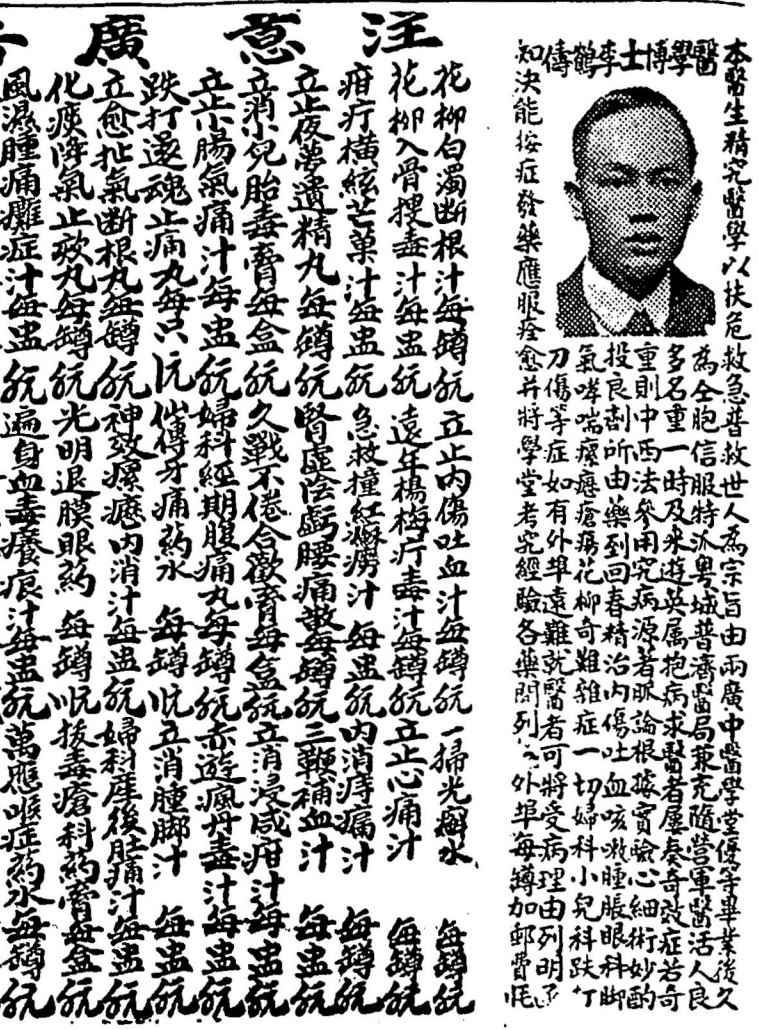 醫學博士李鶴儔
本醫生精究醫學以扶危救急普救世人為宗旨由兩廣中醫學堂優等畢業後久
為仝胞信服特派粵城普濟醫局兼充隨營軍醫活人良
多名重一時及來遊英属抱病求醫者屢奏奇效症若奇
重則中西法參用究病源著脈論根據實驗心細術妙酌
投良劑所由藥到回春精治內傷吐血咳嗽腫脹眼科脚
氣哮喘瘰癧瘡瘍花柳奇難雜症一切婦科小兒科跌打
刀傷等症如有外埠遠難就醫者可將受病理由列明函
知決能按症發藥應服痊愈并將學堂考究經驗各藥開列 外埠每罇加郵費
注意廣
花柳白濁断根汁每罇 立止內傷吐血汁每罇 一掃光癬水 每罇
花柳入骨搜毒汁每盅 遠年楊梅疔毒汁每罇 立止心痛汁 每罇
疳疔橫絃芒菓汁每盅 急救撞紅癍癆汁 每盅 內消痔瘡汁 每罇
立止夜夢遺精丸每罇 腎虛陰虧腰痛散每罇 三鞭補血汁 每盅
立消小兒胎毒膏每盒 久戰不倦合歡膏每盒 立消浸咸疳汁每盅
立止小腸氣痛汁每盅 婦科經期腹痛丸每罇 赤遊瘋丹毒汁每盅
跌打還魂止痛丸每只 牙痛葯水 每罇 立消腫脚汁 每盅
立愈扯氣断根丸每罇 神效瘰癧內消汁每盅 婦科產後肚痛汁每盅
化痰降氣止咳丸每罇 光明退膜眼葯 每罇 拔毒瘡科葯膏每盒
風濕腫痛癱症汁每盅 遍身血毒癢痕汁每盅 萬應喉症葯水每罇